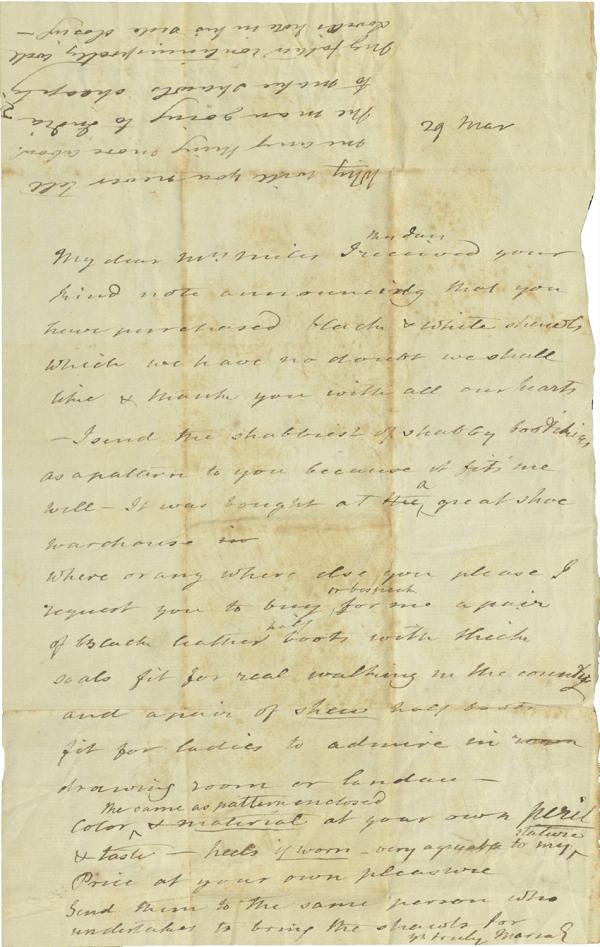 29 Mar
My dear Mrs Miles I received your
Thursday
kind note announcing that you
have purchased black & white shawls
which we have no doubt we shall
like & thank you with all our hearts
— I send the shabbiest of shabby bootikins
as a pattern to you because it fits me
well — It was bought at the a great shoe
warehouse in
where or any where else you please I
request you to buy or bespeak for me a pair
of black leather half boots with thick
soals fit for real walking in the country
and a pair of shew half boots
fit for ladies to admire in room
drawing room or landau —
the same as pattern enclosed
Color & material at your own peril
& taste — heels if worn — very agreeable to my stature
Price at your own pleasure
Send them to the same person who
undertakes to bring the shawls for
yrs truly Maria E
Why will you never tell
me any thing more about
the man going to India
to make shawls cheaply?
My father continues pretty well
hole in his side closing —